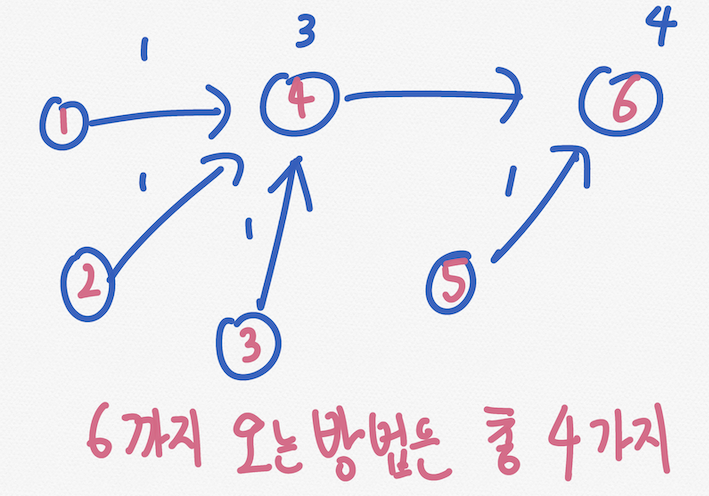 1 3 4
1 4 6
1 1 1
2 5
3
6까지 오는 방법은 총 4가지